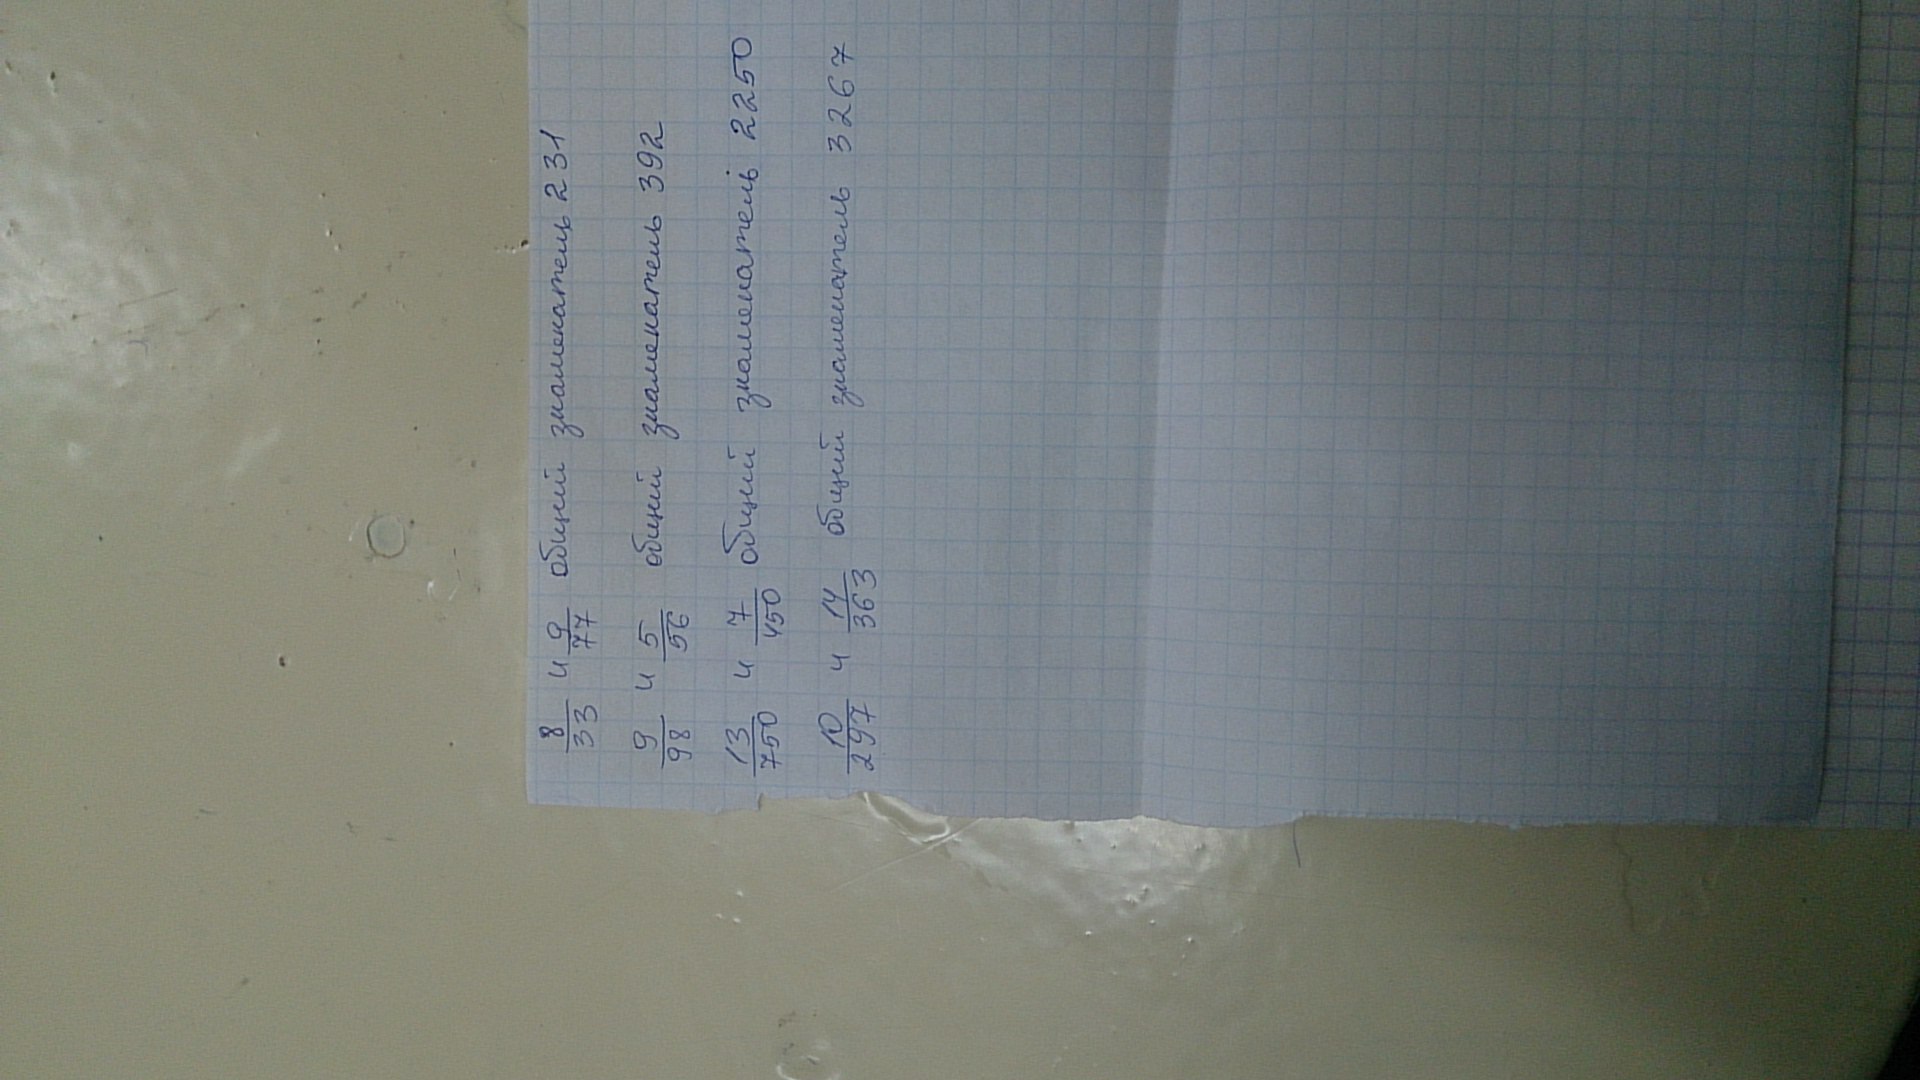 8/33 и 9/77 общий знаменатель 231
9/98 и 5/56 общий знаменатель 392
13/750 и 7/450 общий знаменатель 2250
10/297 и 14/363 общий знаменатель 3267